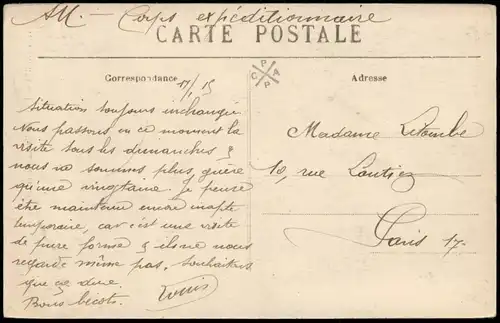 AM — Corps expéditionnaire
CARTE POSTALE
Correspondance
Adresse
CPPA
17/1 15
Situation toujours inchangée
Nous passons en ce moment la
visite tous les dimanches &
nous ne sommes plus guère
qu'une vingtaine. Je pense
être maintenu encore inapte
temporaire, car c'est une visite
de pure forme & ils ne nous
regarde même pas. Souhaitons
que ça dure.
Bons bécots. Louis
Madame Letombe
10, rue Lantiez
Paris 17-